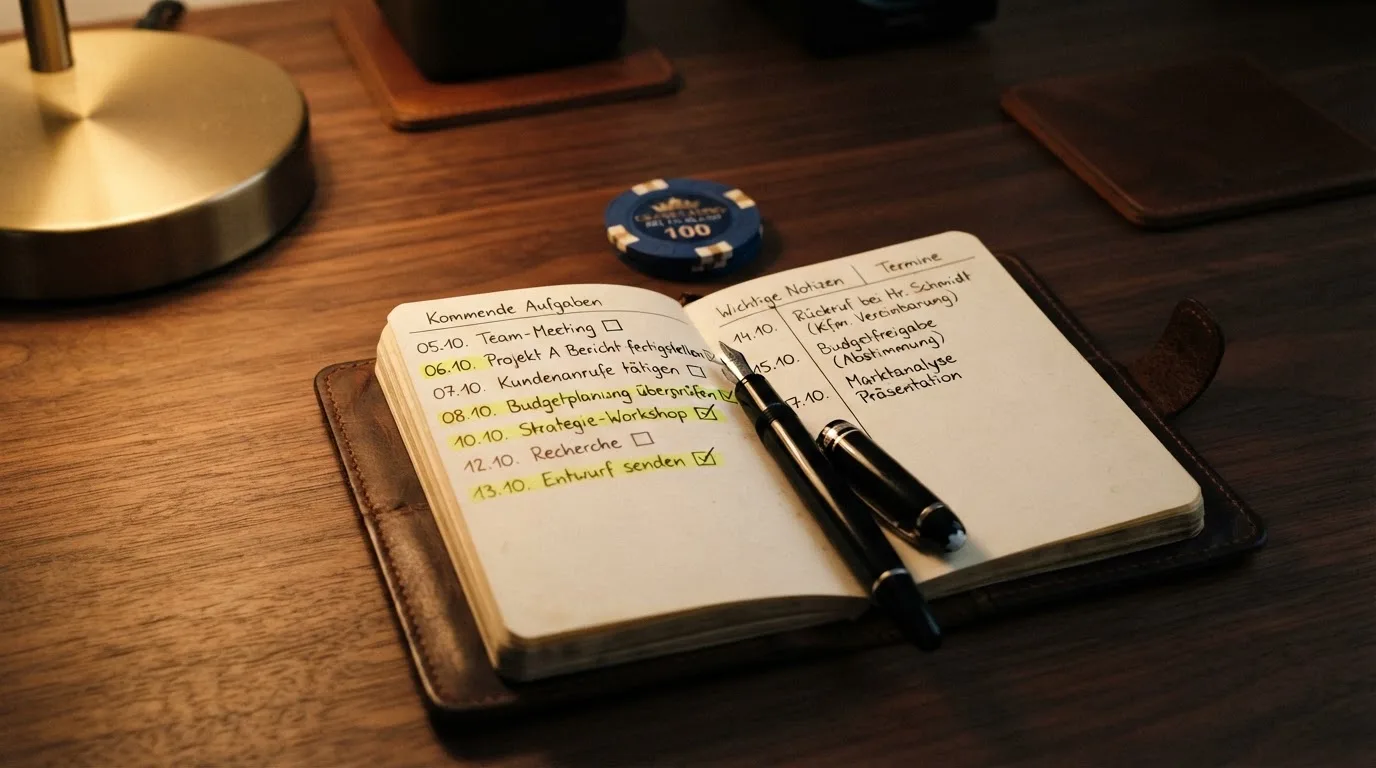 Kommende Aufgaben
05.10. Team-Meeting
06.10. Projekt A Bericht fertigstellen
07.10. Kundenanrufe tätigen
08.10. Budgetplanung überprüfen
10.10. Strategie-Workshop
12.10. Recherche
13.10. Entwurf senden
Wichtige Notizen | Termine
14.10. Rückruf bei Hr. Schmidt
(Kfm. Vereinbarung)
15.10. Budgetfreigabe
(Abstimmung)
7.10. Marktanalyse
Präsentation
100